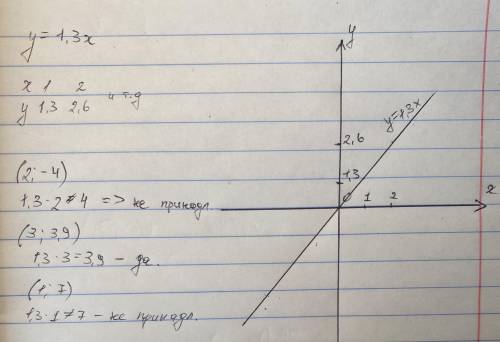 y = 1,3x
x 1 2
y 1,3 2,6 и т.д
(2; -4)
1,3·2 ≠ 4 => не принадл.
(3; 3,9)
1,3·3 = 3,9 – да.
(1; 7)
1,3·1 ≠ 7 – не принадл.
y
y=1,3x
2,6
1,3
0
1 2
x